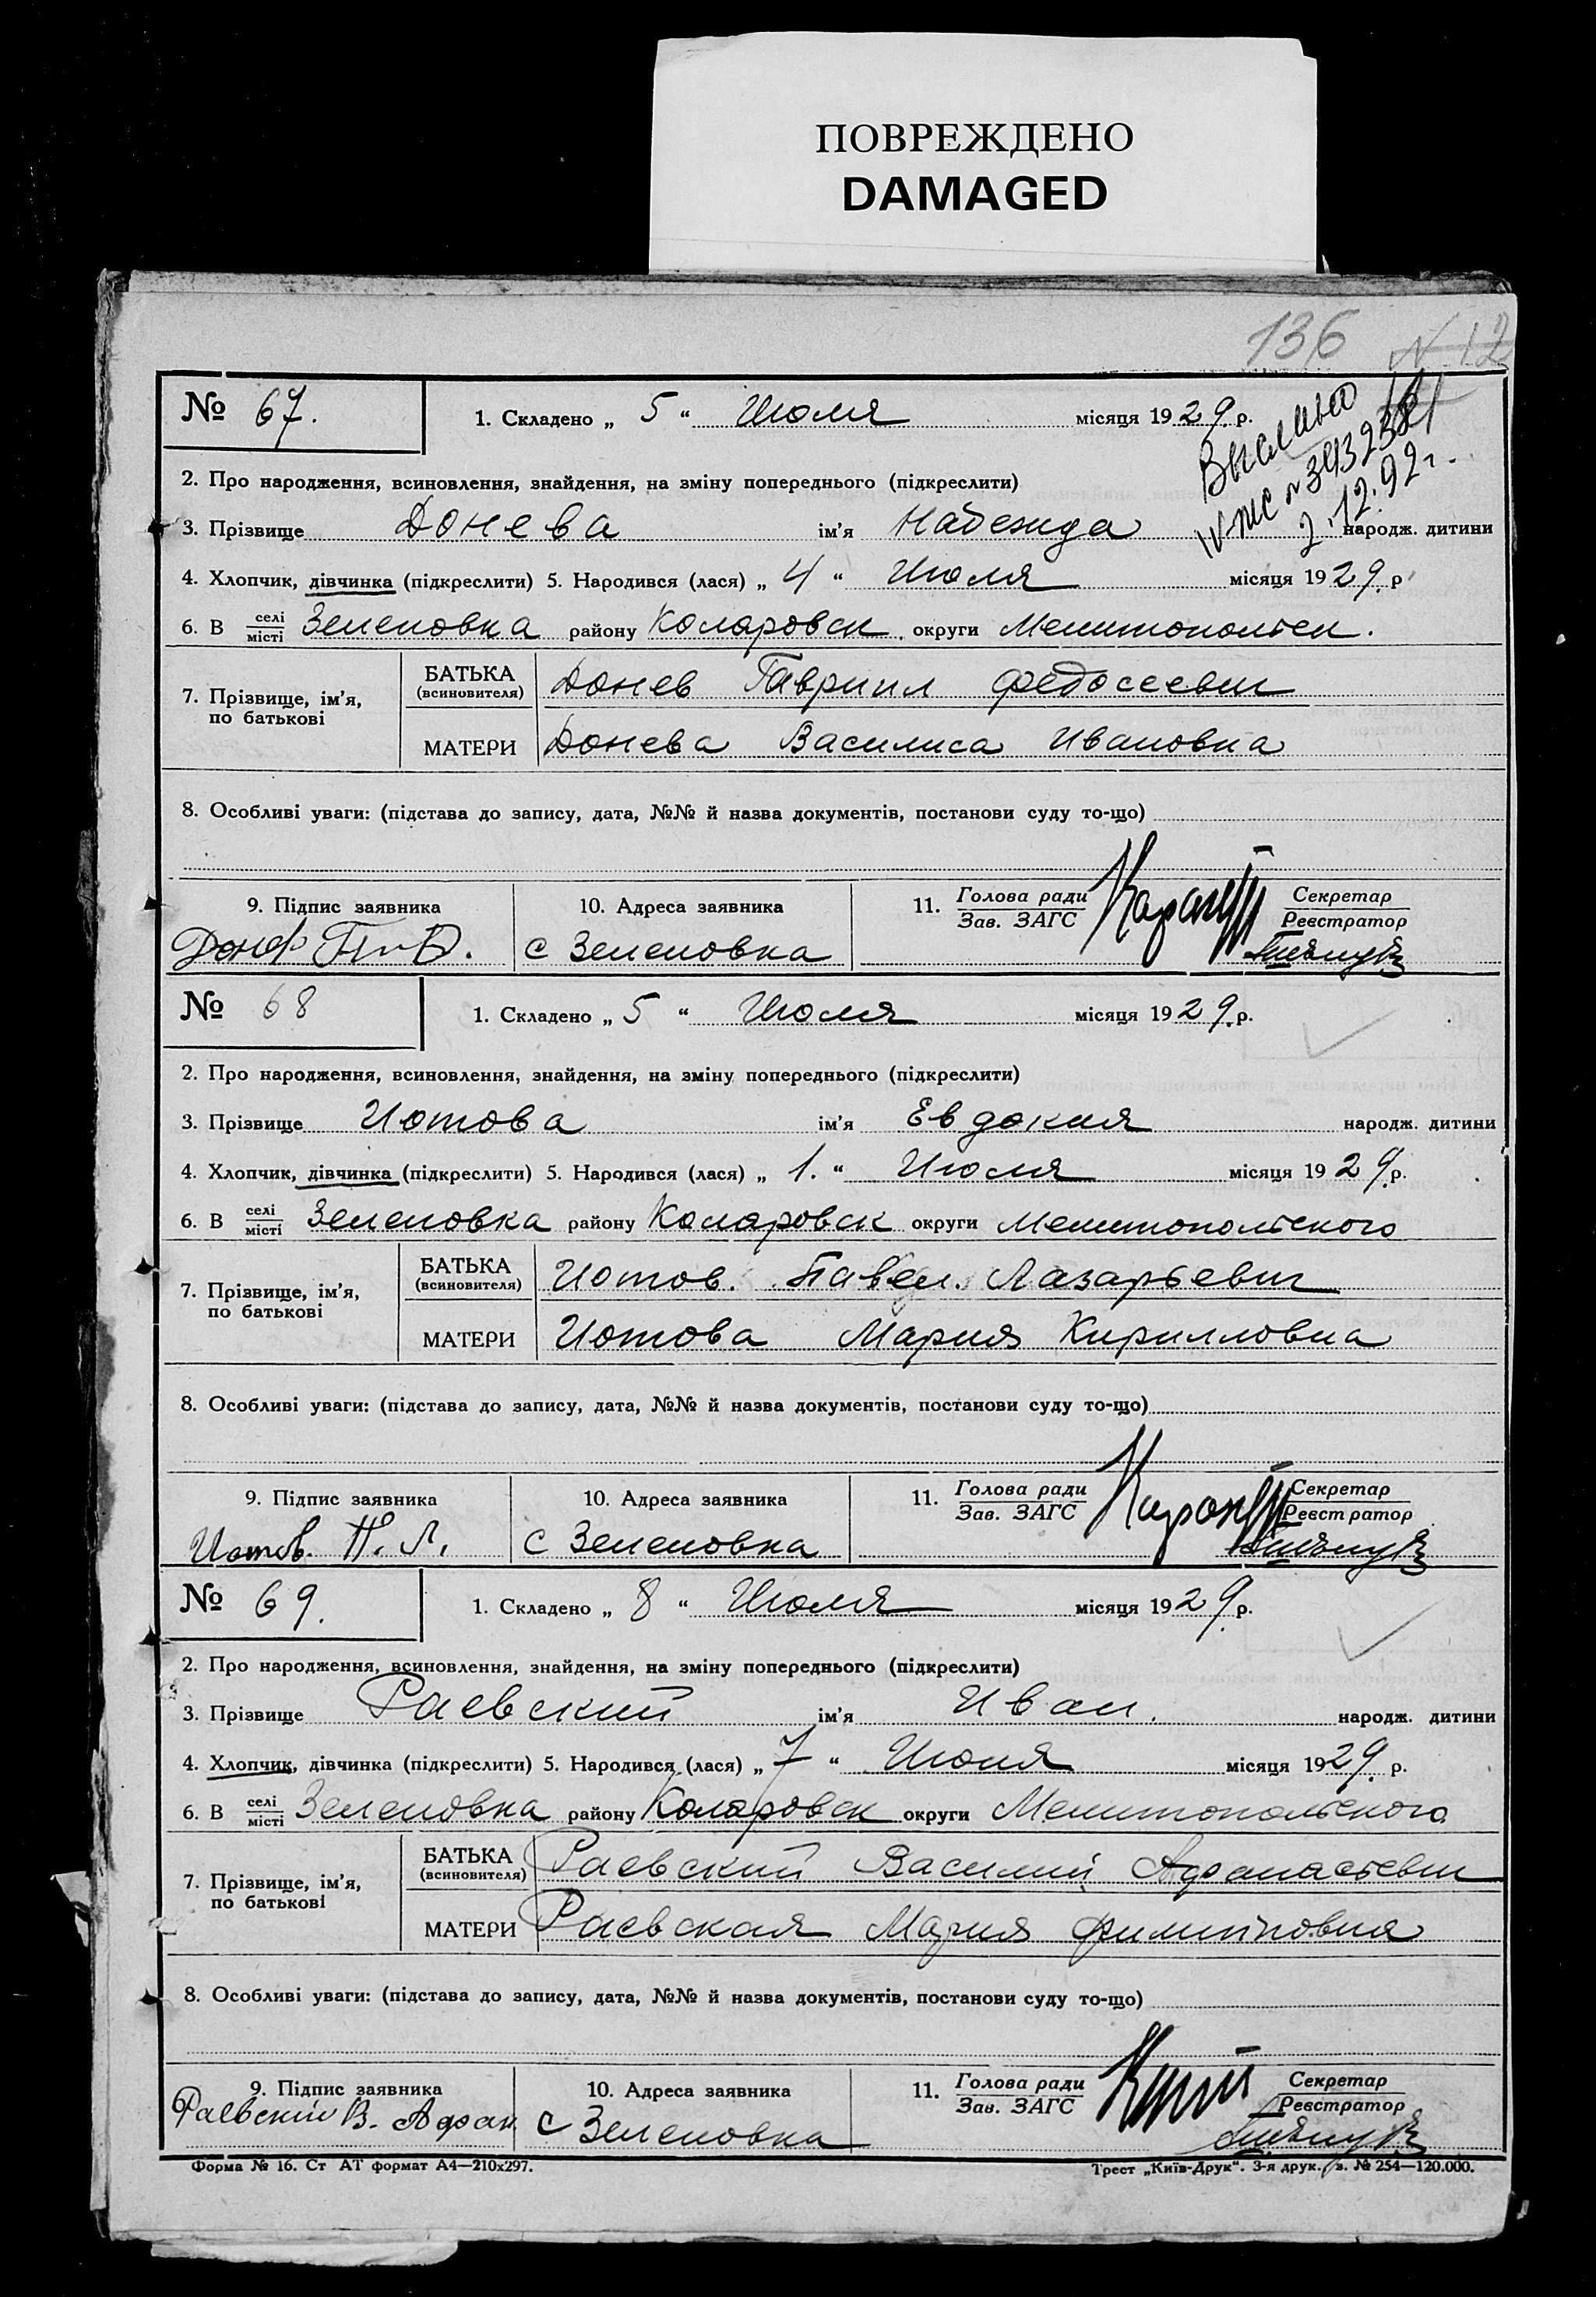 ПОВРЕЖДЕНО
DAMAGED
136 N 12
№ 67. 1. Складено „ 5 “ Июля місяця 1929. р.
Выслано
IV-ЖС № 3932381
2.12.92 г.
2. Про народження, всиновлення, знайдення, на зміну попереднього (підкреслити)
3. Прізвище Донева ім'я Надежда народж. дитини
4. Хлопчик, дівчинка (підкреслити) 5. Народився (лася) „ 4 “ Июля місяця 1929. р
6. В селі/місті Зеленовка району Коларовск округи Мелитопольск.
7. Прізвище, ім'я, по батькові
БАТЬКА (всиновителя) Донев Гавриил Федосеевич
МАТЕРИ Донева Василиса Ивановна
8. Особливі уваги: (підстава до запису, дата, №№ й назва документів, постанови суду то-що)
9. Підпис заявника 10. Адреса заявника 11. Голова ради/Зав. ЗАГС Секретар/Реєстратор
с Зеленовка
№ 68 1. Складено „ 5 “ Июля місяця 1929. р.
2. Про народження, всиновлення, знайдення, на зміну попереднього (підкреслити)
3. Прізвище Иотова ім'я Евдокия народж. дитини
4. Хлопчик, дівчинка (підкреслити) 5. Народився (лася) „ 1. “ Июля місяця 1929. р.
6. В селі/місті Зеленовка району Коларовск округи Мелитопольского
7. Прізвище, ім'я, по батькові
БАТЬКА (всиновителя) Иотов. Павел. Лазарьевич
МАТЕРИ Иотова Мария Кирилловна
8. Особливі уваги: (підстава до запису, дата, №№ й назва документів, постанови суду то-що)
9. Підпис заявника 10. Адреса заявника 11. Голова ради/Зав. ЗАГС Секретар/Реєстратор
Иотов. П. Л. с Зеленовка
№ 69. 1. Складено „ 8 “ Июля місяця 1929. р.
2. Про народження, всиновлення, знайдення, на зміну попереднього (підкреслити)
3. Прізвище Раевский ім'я Иван. народж. дитини
4. Хлопчик, дівчинка (підкреслити) 5. Народився (лася) „ 7 “ Июня місяця 1929. р.
6. В селі/місті Зеленовка району Коларовск округи Мелитопольского
7. Прізвище, ім'я, по батькові
БАТЬКА (всиновителя) Раевский Василий Афанасьевич
МАТЕРИ Раевская Мария Филипповна
8. Особливі уваги: (підстава до запису, дата, №№ й назва документів, постанови суду то-що)
9. Підпис заявника 10. Адреса заявника 11. Голова ради/Зав. ЗАГС Секретар/Реєстратор
Раевский В. Афан с Зеленовка
Форма № 16. Ст АТ формат А4—210х297. Трест „Київ-Друк“. 3-я друк. з. № 254—120.000.